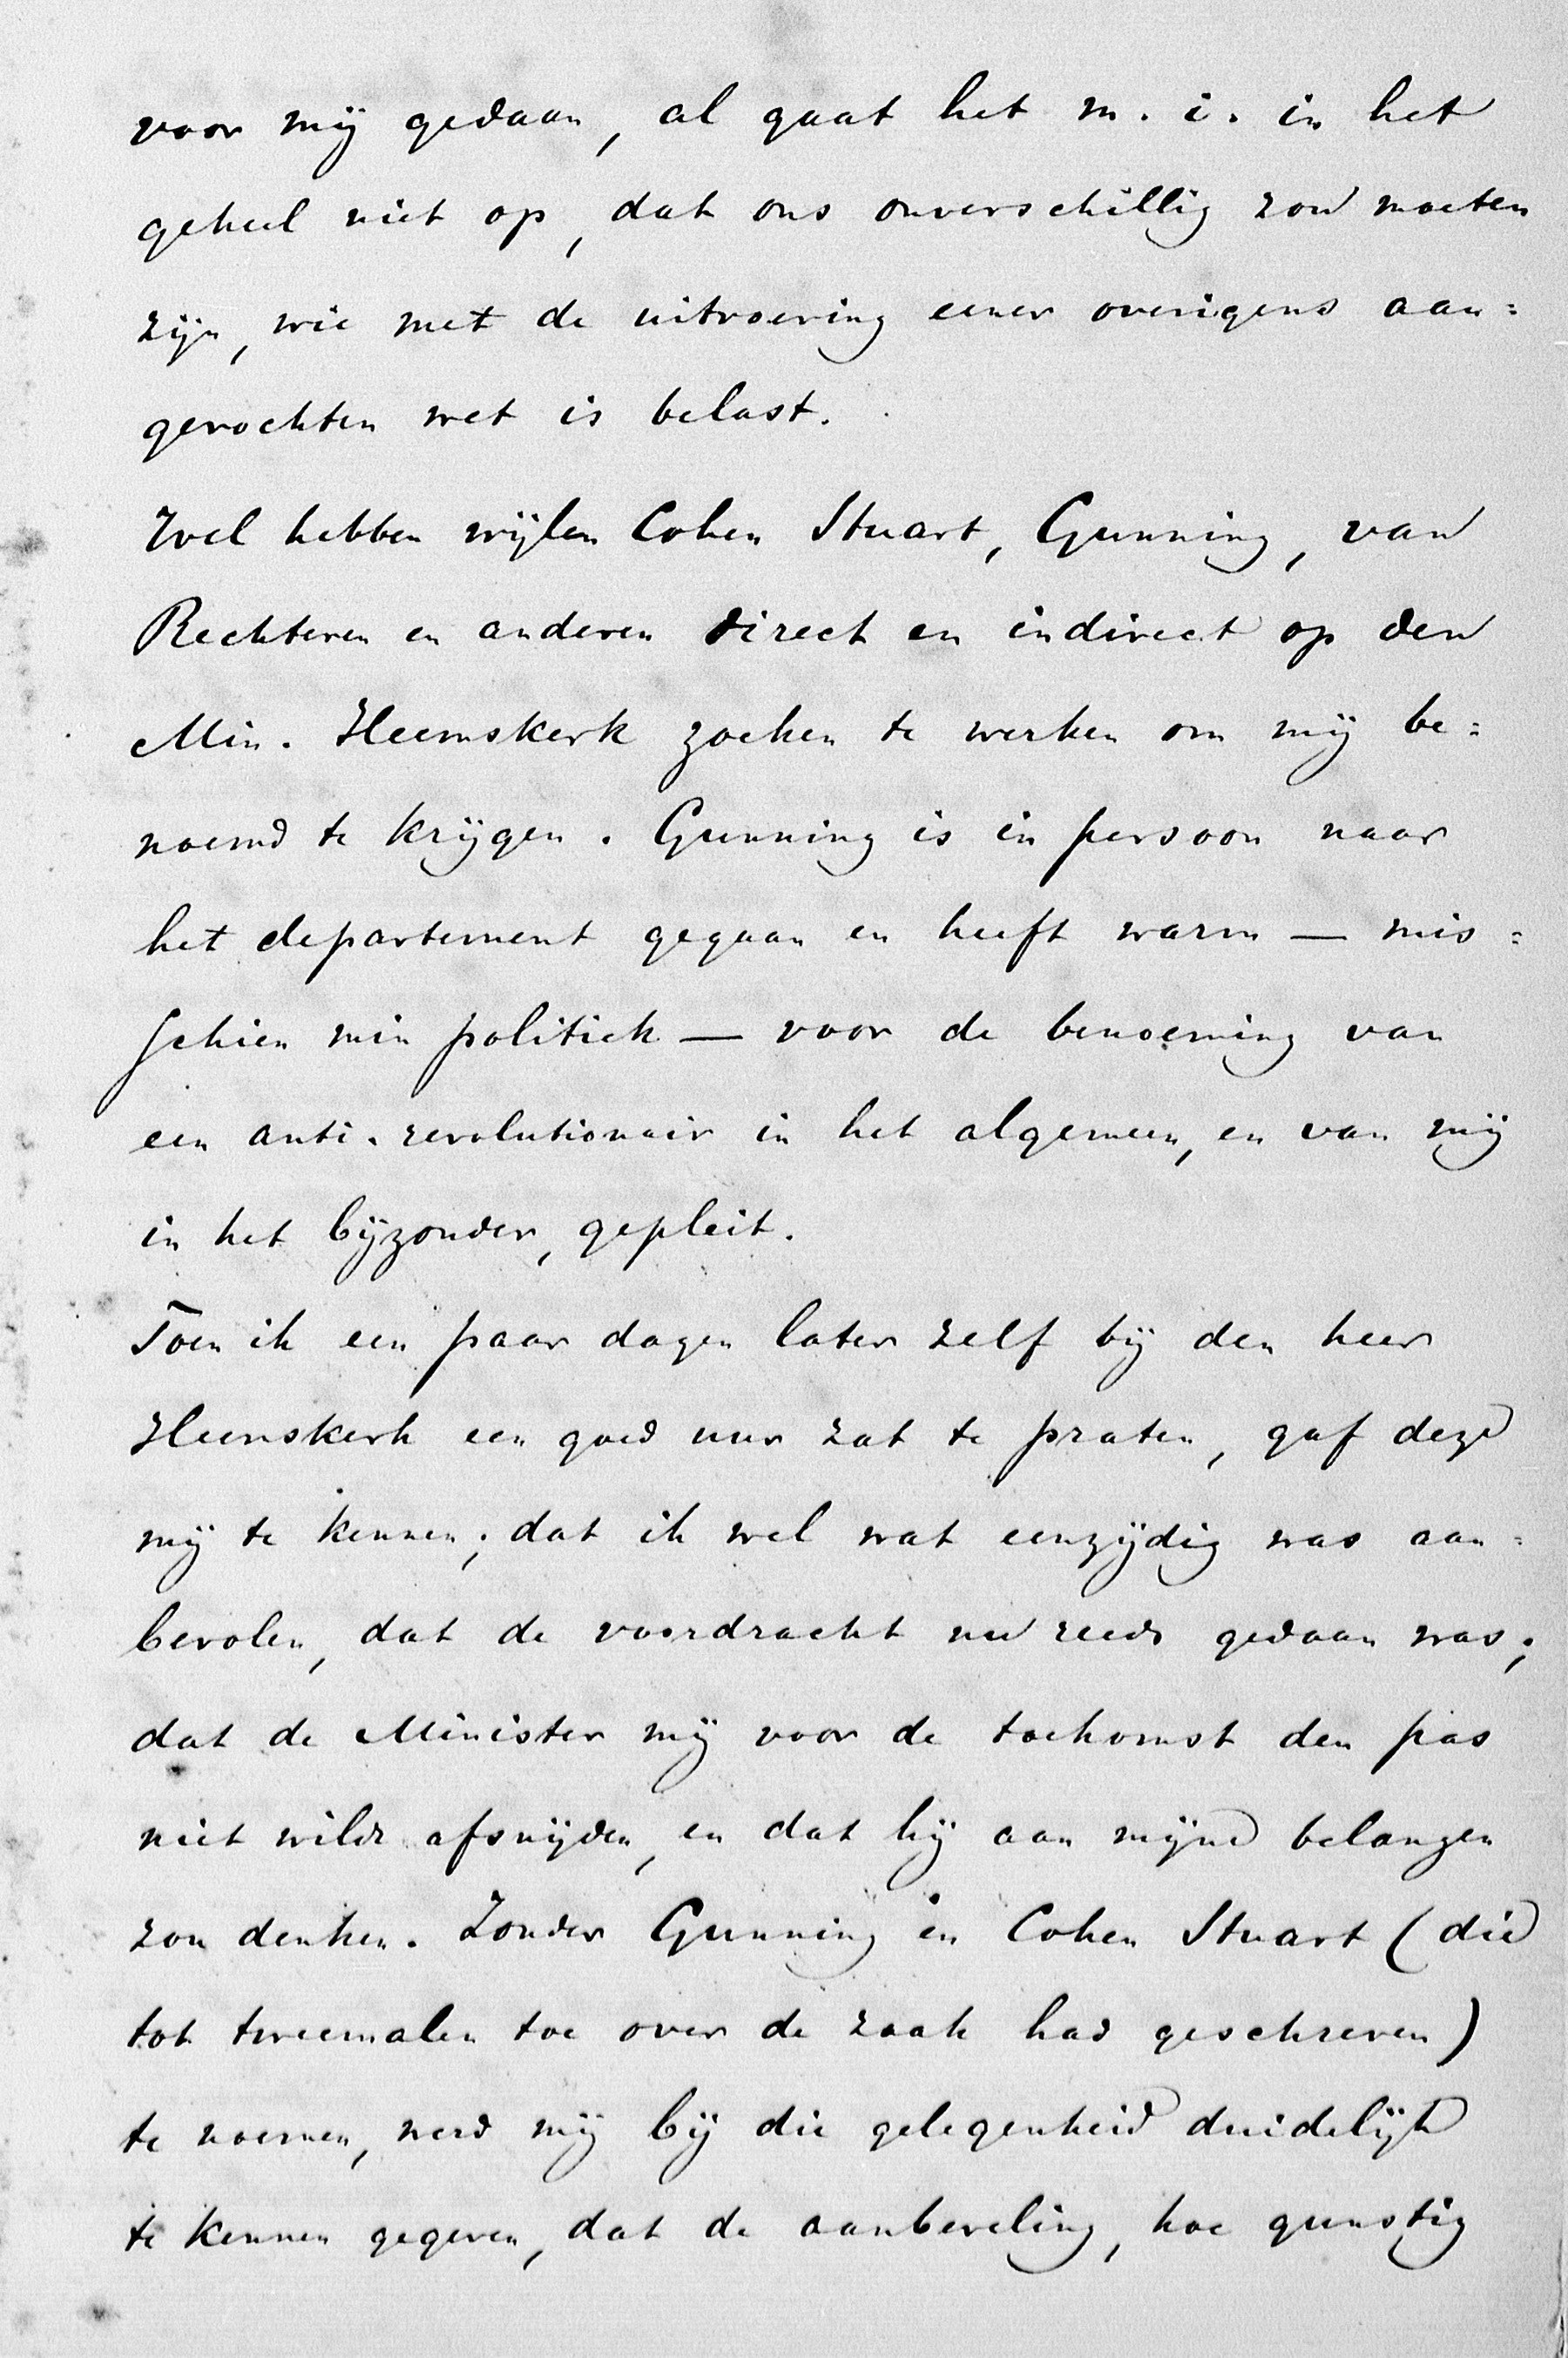 voor mij gedaan, al gaat het m. i. in het
geheel niet op, dat ons onverschillig zou moeten
zijn, wie met de uitvoering eener overigens aan=
gevochten wet is belast.
Wel hebben wijlen Cohen Stuart, Gunning, van
Rechteren en anderen direct en indirect op den
Min. Heemskerk zoeken te werken om mij be=
noemd te krijgen. Gunning is in persoon naar
het departement gegaan en heeft warm — mis=
schien min politiek — voor de benoeming van
een anti-revolutionair in het algemeen, en van mij
in het bijzonder, gepleit.
Toen ik een paar dagen later zelf bij den heer
Heemskerk een goed uur zat te praten, gaf deze
mij te kennen; dat ik wel wat eenzijdig was aan=
bevolen, dat de voordracht nu reeds gedaan was;
dat de Minister mij voor de toekomst den pas
niet wilde afsnijden, en dat hij aan mijne belangen
zou denken. Zonder Gunning en Cohen Stuart (die
tot tweemalen toe over de zaak had geschreven)
te noemen, werd mij bij die gelegenheid duidelijk
te kennen gegeven, dat de aanbeveling, hoe gunstig